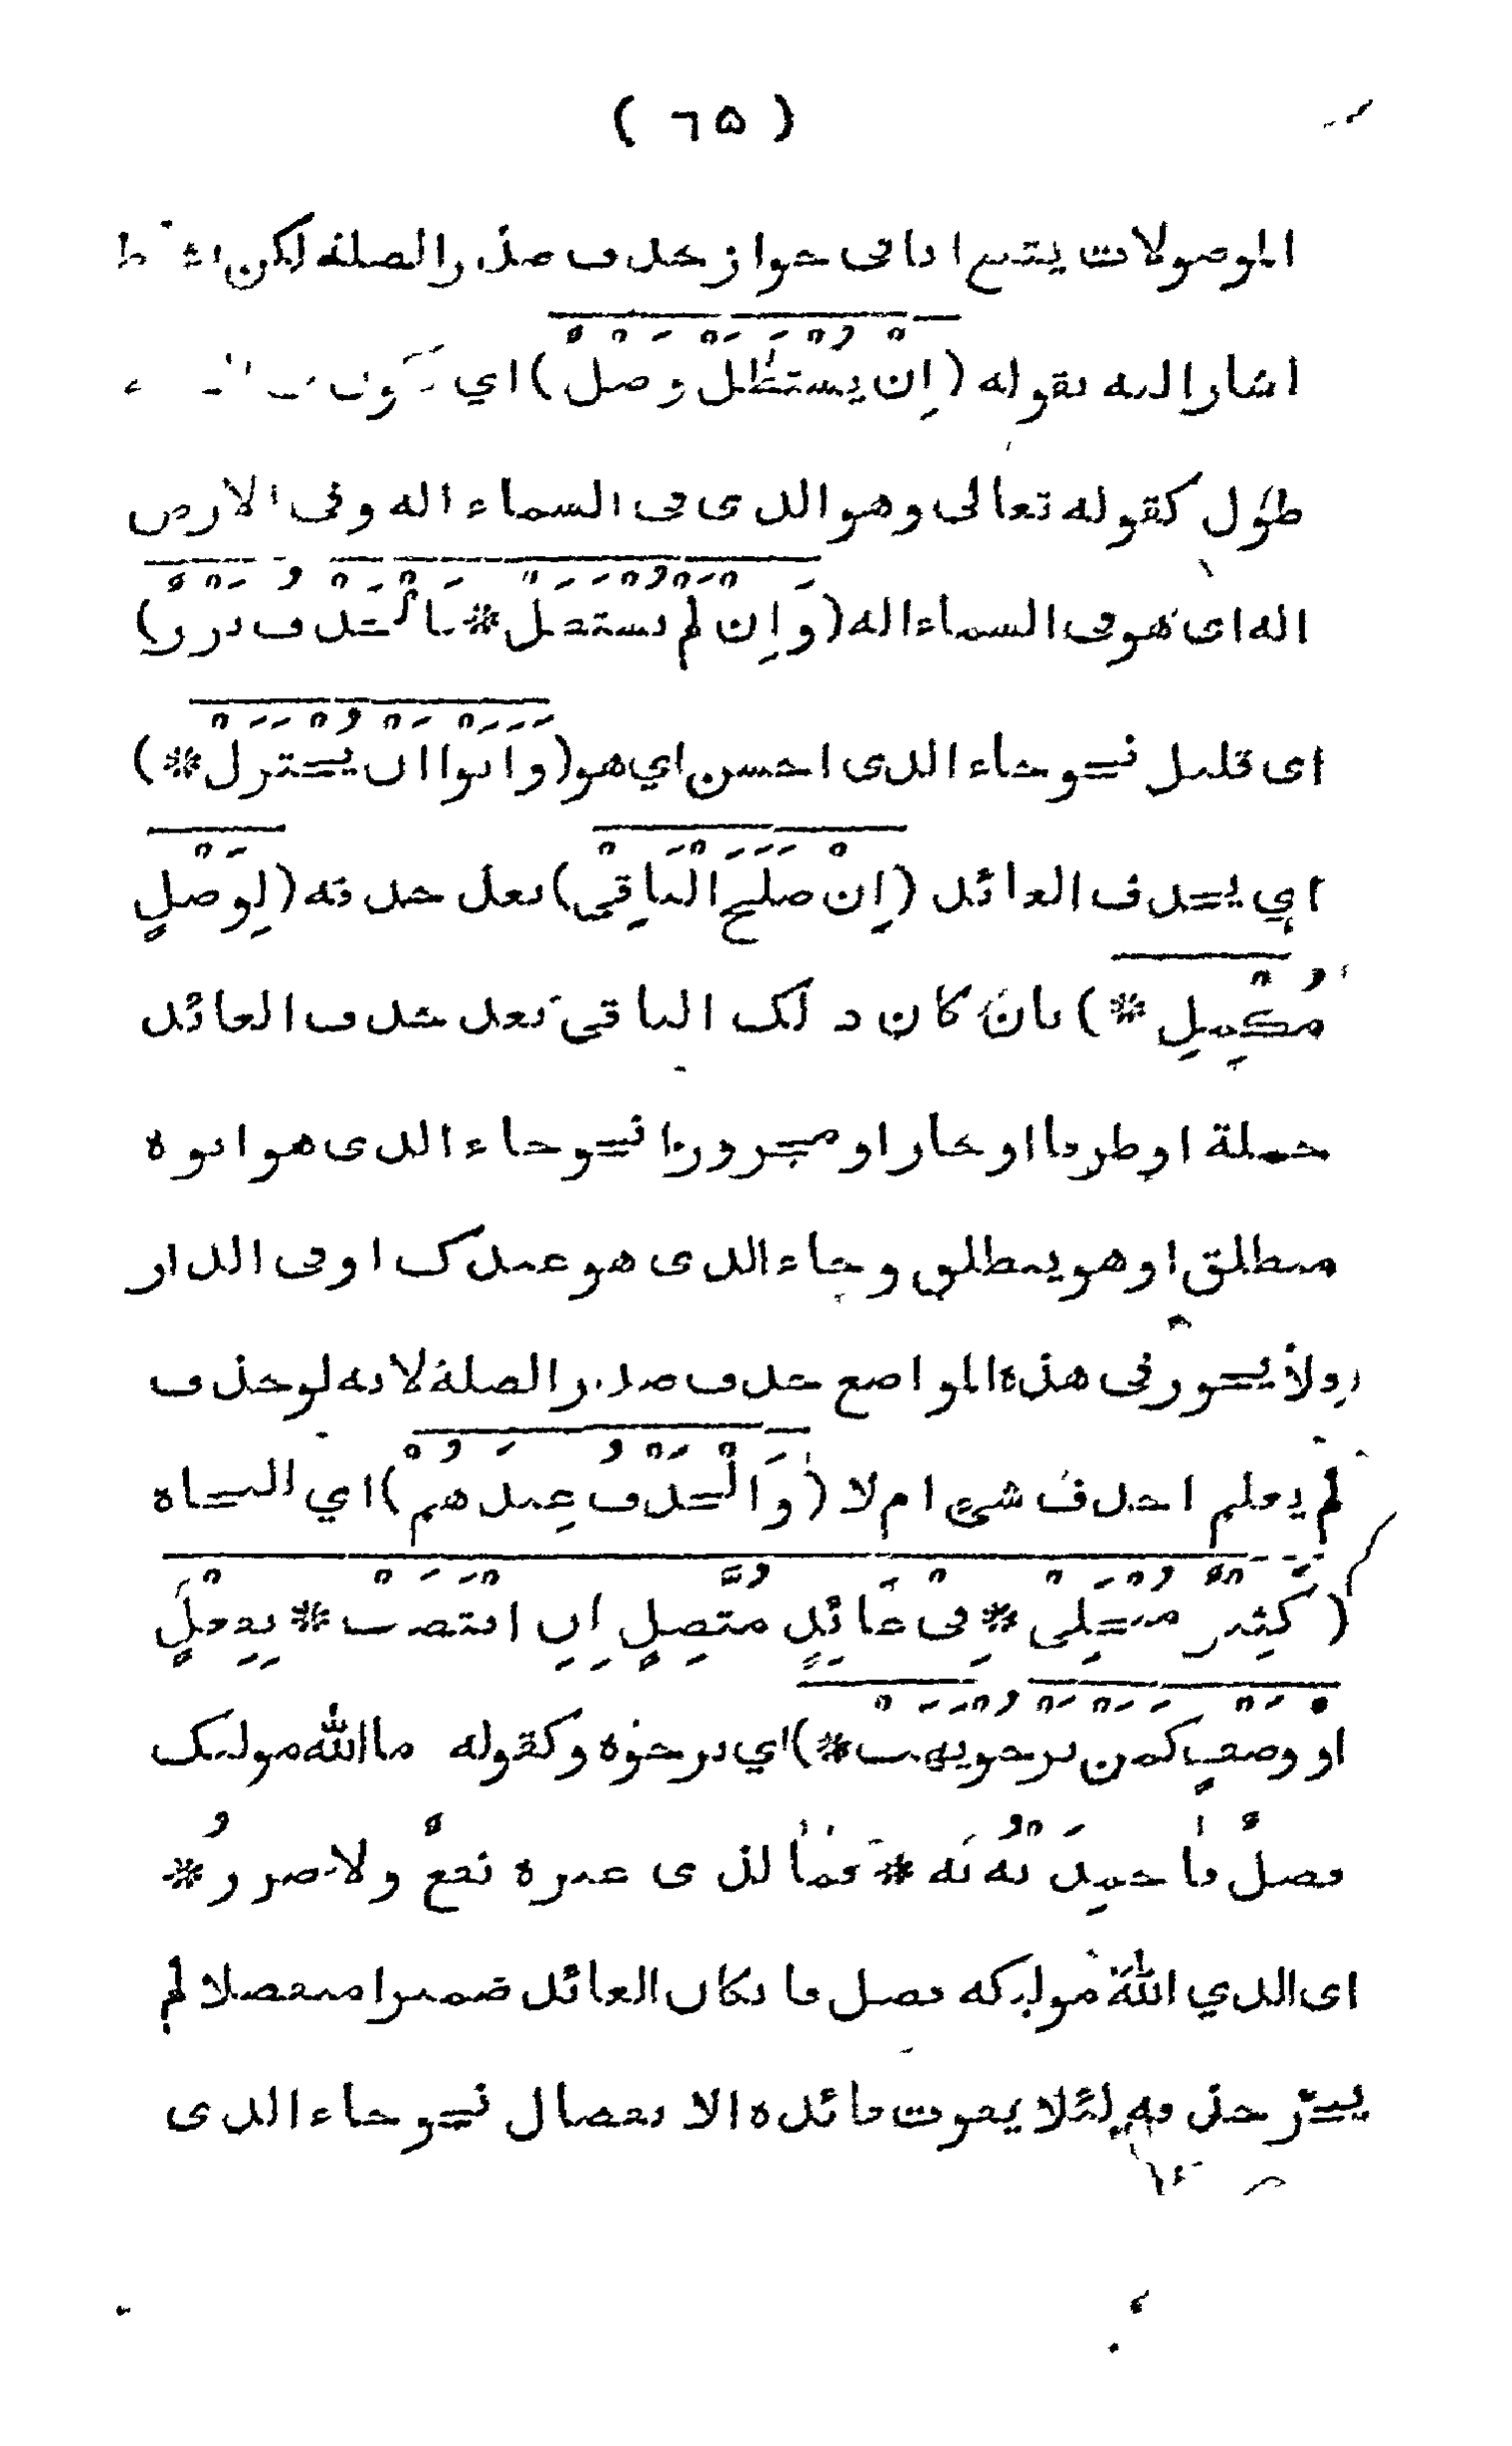 ( ٦٥ )
الموصولات يتبع ايا في جواز حذف صدر الصلة لكن
اشار اليه بقوله (اِنْ يُسْتَطَلْ وَصْلٌ) اي
طول كقوله تعالى وهو الذى فى السماء اله وفى الارض
اله اى هو فى السماء اله (وَاِنْ لَمْ يُسْتَطَلْ * فَالْحَذْفُ نَزْرٌ)
اى قليل نحو جاء الذى احسن اي هو (وَاَبَوْا اَنْ يُخْتَزَلْ *)
اي يحذف العائد (اِنْ صَلَحَ الْبَاقِيْ) بعد حذفه (لِوَصْلٍ
مُكْمِلِ *) بان كان ذلك الباقي بعد حذف العائد
جملة او ظرفا او جار او مجرورا نحو جاء الذى هو ابوه
منطلق او هو ينطلق وجاء الذى هو عندك او فى الدار
ولا يجوز فى هذه المواضع حذف صدر الصلة لانه لو حذف
لم يعلم احذف شئ ام لا (وَالْحَذْفُ عِنْدَهُمْ) اي النحاة
(كَثِيْرٌ مُنْجَلِيْ * فِيْ عَائِدٍ مُتَّصِلٍ اِنِ انْتَصَبْ * بِفِعْلٍ
اَوْ وَصْفٍ كَمَنْ نَرْجُوْ يَهَبْ *) اي نرجوه وكقوله ما الله موليك
فضلٌ فاحمدَنْه به * فما لذى غيره نفعٌ ولا ضررُ *
اى الذي الله موليكه فضل فا نكان العائد ضميرا منفصلا لم
يجز حذفه لئلا يفوت فائدة الا نفصال نحو جاء الذى